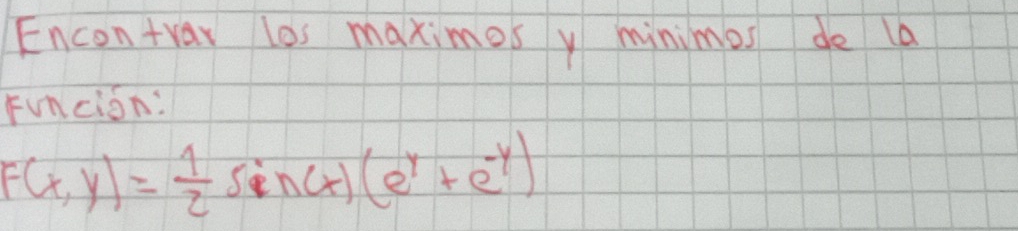 Encontrar los maximos y minimos de la
Función:
F(x,y) = 1/2 sin(x)(e^y + e^-y)